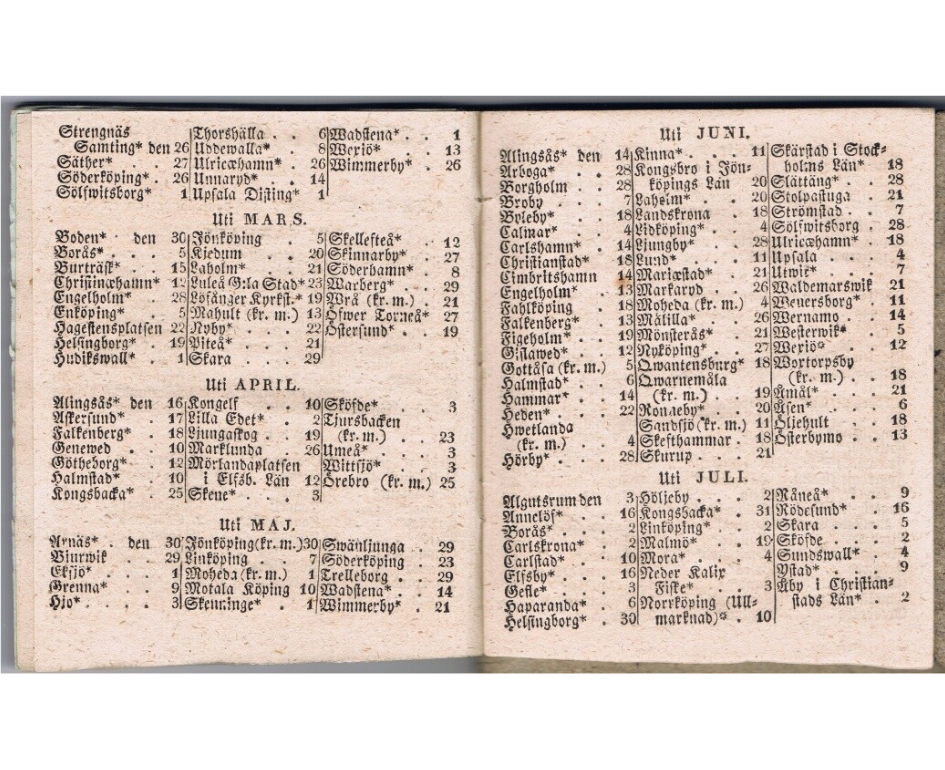 Strengnäs
Samting* den 26
Säther* . . 27
Söderköping* . 26
Sölfwitsborg* 1
Thorshälla . . 6
Uddewalla* . . 8
Ulricæhamn* . 26
Unnaryd* . . 14
Upsala Disting* 1
Wadstena* . . 1
Wexiö* . . 13
Wimmerby* . 26
Uti MARS.
Boden* . den 30
Borås* . . 5
Burträsk* . . 15
Christinæhamn* 12
Engelholm* . 28
Enköping* . . 5
Hagestensplatsen 22
Helsingborg* . 19
Hudikswall* . 1
Jönköping . . 5
Kjedum . . 20
Laholm* . . 21
Luleå G:la Stad* 23
Löfånger Kyrkst.* 19
Mahult (kr. m.) 13
Nyby* . . 22
Piteå* . . 21
Skara . . 29
Skellefteå* . 12
Skinnarby* . 27
Söderhamn* . 8
Warberg* . . 29
Wrå (kr. m.) . 21
Öfwer Torneå* 27
Östersund* . 19
Uti APRIL.
Alingsås* den 16
Askersund* . 17
Falkenberg* . 18
Genewed . . 10
Götheborg* . 12
Halmstad* . 10
Kongsbacka* . 25
Kongelf . . 10
Lilla Edet* . 2
Ljungaskog . . 19
Marklunda . 26
Mörlandaplatsen
i Elfsb. Län 12
Skene* . . 3
Sköfde* . . 3
Tjursbacken
(kr. m.) . . 23
Umeå* . . 3
Wittsjö* . . 3
Örebro (kr. m.) 25
Uti MAJ.
Arnäs* . den 30
Bjurwik . . 29
Eksjö* . . 1
Grenna* . . 9
Hjo* . . . 3
Jönköping(kr. m.)30
Linköping . . 7
Moheda (kr. m.) 1
Motala Köping 10
Skenninge* . 1
Swänljunga . 29
Söderköping 23
Trelleborg . . 29
Wadstena* . . 14
Wimmerby* . 21
Uti JUNI.
Alingsås* den 14
Arboga* . . 28
Borgholm . . 28
Broby . . 7
Byleby* . . 18
Calmar* . . 4
Carlshamn* . 14
Christianstad* 18
Cimbritshamn 14
Engelholm* . 13
Fahlköping . 18
Falkenberg* . 13
Figeholm* . . 19
Gislawed* . . 12
Gottåsa (kr. m.) 5
Halmstad* . . 6
Hammar* . . 14
Heden* . . 22
Hwetlanda
(kr. m.) . . 4
Hörby* . . . 28
Kinna* . . 11
Kongsbro i Jön-
köpings Län 20
Laholm* . . 20
Landskrona . 18
Lidköping* . 4
Ljungby* . . 28
Lund* . . 11
Mariæstad* . 21
Markaryd . 26
Moheda (kr. m.) 4
Målilla* . . 26
Mönsterås* . 21
Nyköping* . 27
Qwantensburg* 18
Qwarnemåla
(kr. m.) . . 19
Ronneby* . . 20
Sandsjö (kr. m.) 11
Skefthammar . 18
Skurup . . 21
Skärstad i Stock-
holms Län* . 18
Slättäng* . . 28
Stolpastuga . 21
Strömstad . . 7
Sölfwitsborg . 28
Ulricæhamn* . 18
Upsala . . 4
Utwik* . . 7
Waldemarswik 21
Weuersborg* . 11
Wernamo . . 14
Westerwik* . 5
Wexiö* . . 12
Wortorpsby
(kr. m.) . . 18
Åmål* . . 21
Åsen* . . 6
Öljehult . . 18
Österbymo . . 13
Uti JULI.
Algutsrum den 3
Annelöf* . . 16
Borås* . . 2
Carlskrona* . 2
Carlstad* . . 10
Elfsby* . . 16
Gefle* . . 3
Haparanda* . 6
Helsingborg* . 30
Höljeby . . 2
Kongsbacka* . 31
Linköping* . 2
Malmö* . . 19
Mora* . . 4
Neder Kalix
Fiske* . . 3
Norrköping (Ull-
marknad)* . 10
Råneå* . . 9
Rödesund* . 16
Skara . . 5
Sköfde . . 2
Sundswall* . 4
Ystad* . . 9
Åby i Christian-
stads Län* . 2